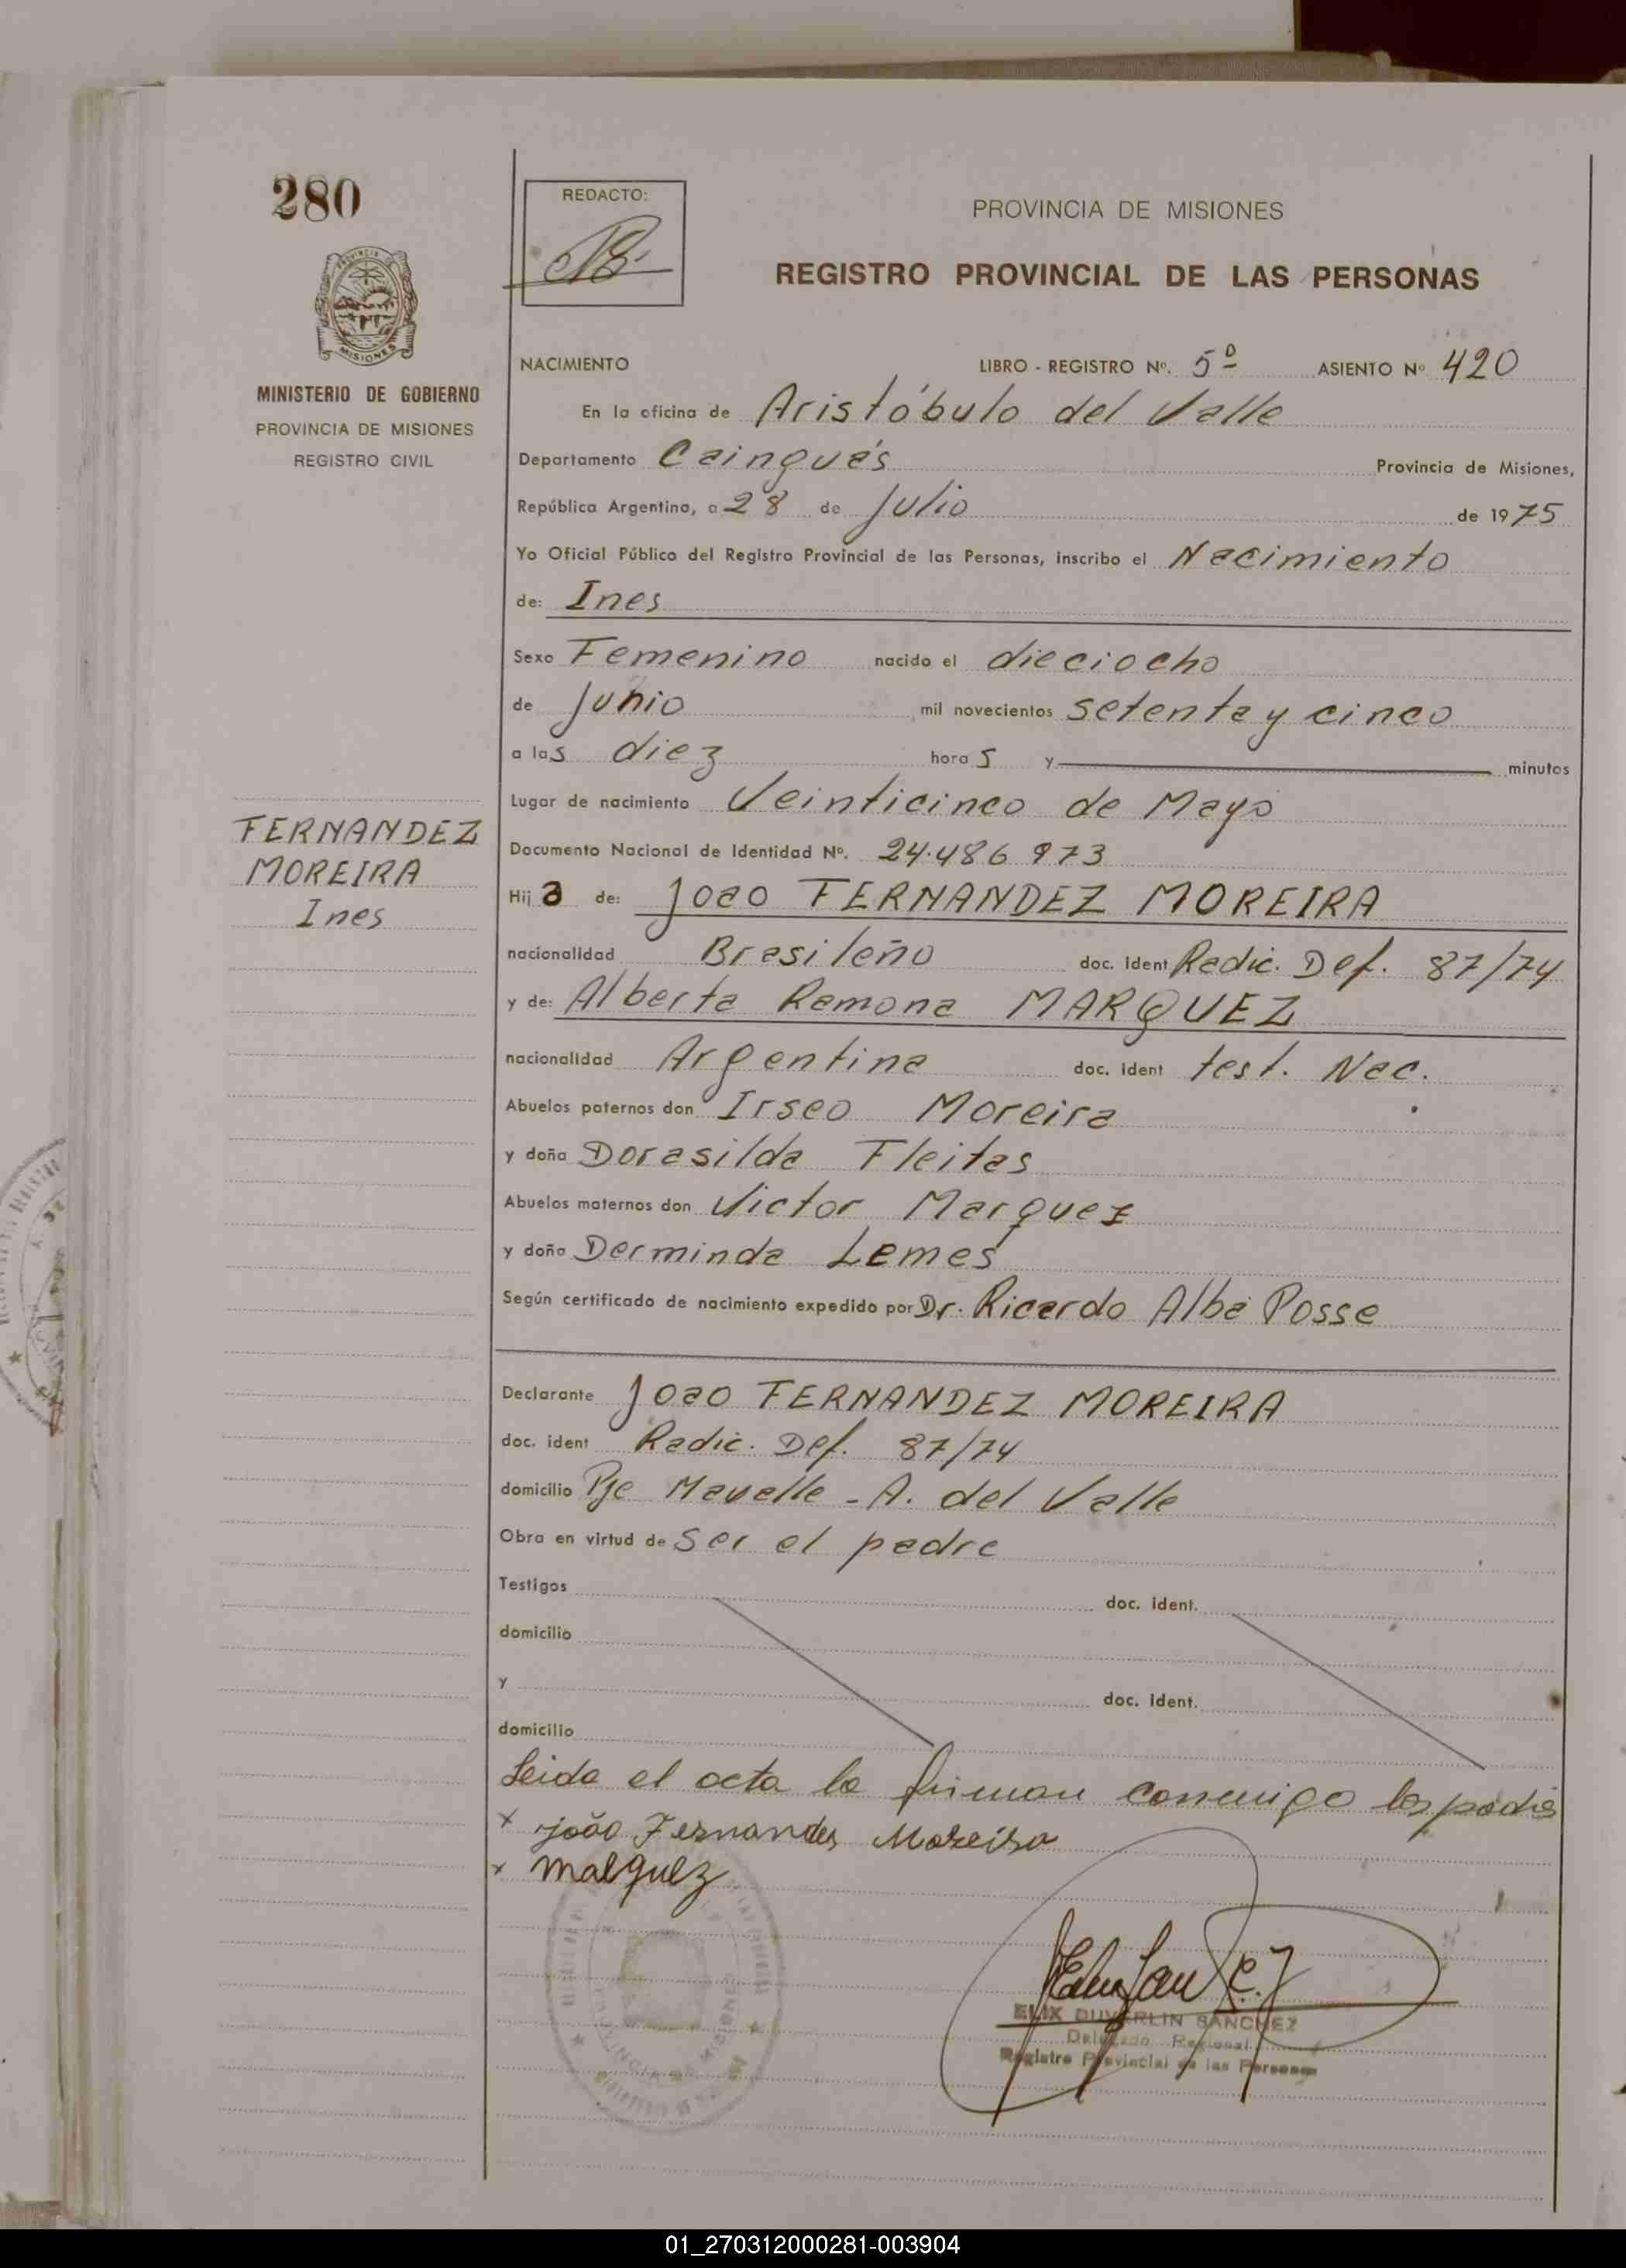 280
REDACTO:
PROVINCIA DE MISIONES
REGISTRO PROVINCIAL DE LAS PERSONAS
MISIONES
MINISTERIO DE GOBIERNO
PROVINCIA DE MISIONES
REGISTRO CIVIL
NACIMIENTO LIBRO - REGISTRO Nº. 5º ASIENTO Nº 420
En la oficina de Aristóbulo del Valle
Departamento Cainguás Provincia de Misiones,
República Argentina, a 28 de Julio de 1975
Yo Oficial Público del Registro Provincial de las Personas, inscribo el Nacimiento
de: Ines
Sexo Femenino nacido el dieciocho
de Junio mil novecientos setenta y cinco
a las diez horas y minutos
Lugar de nacimiento Veinticinco de Mayo
Documento Nacional de Identidad Nº. 24.486 973
FERNANDEZ
MOREIRA
Ines
Hija de: Joao FERNANDEZ MOREIRA
nacionalidad Brasileño doc. ident Radic. Def. 87/74
y de: Alberta Ramona MARQUEZ
nacionalidad Argentina doc. ident test. Nac.
Abuelos paternos don Irseo Moreira
y doña Dorasilda Fleitas
Abuelos maternos don Victor Marquez
y doña Derminda Lemes
Según certificado de nacimiento expedido por Dr. Ricardo Alba Posse
Declarante Joao FERNANDEZ MOREIRA
doc. ident Radic. Def. 87/74
domicilio Pje Mavalle - A. del Valle
Obra en virtud de ser el padre
Testigos doc. ident.
domicilio
y doc. ident.
domicilio
Leida el acta la firman conmigo los padres
x joão Fernandes Moreira
x Malquez
ELIX DUVERLIN SANCHEZ
Delegado Regional
Registro Provincial de las Personas
01_270312000281-003904